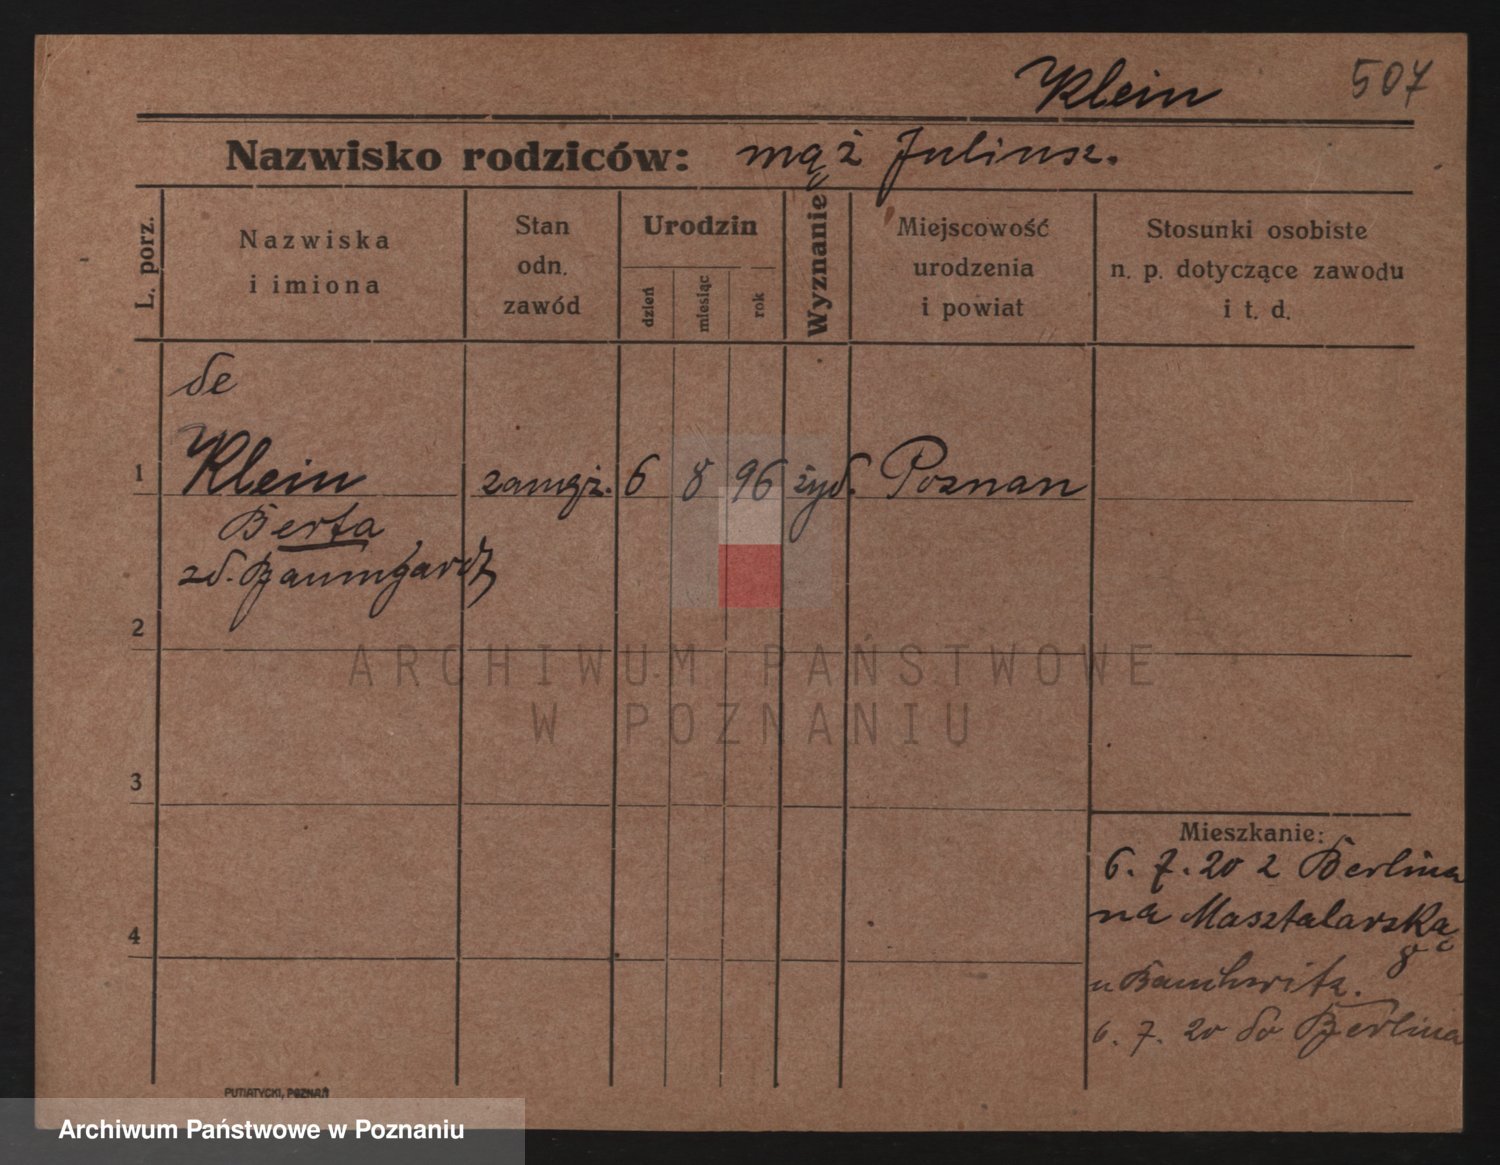 Klein
507
Nazwisko rodziców: mąż Juliusz.
L. porz.
Nazwiska
i imiona
Stan
odn.
zawód
Urodzin
dzień
miesiąc
rok
Wyznanie
Miejscowość
urodzenia
i powiat
Stosunki osobiste
n. p. dotyczące zawodu
i t. d.
de
1 Klein zamęż. 6 8 96 żyd. Poznan
Berta
zd. Baumgardt
2
ARCHIWUM PAŃSTWOWE
W POZNANIU
3
Mieszkanie:
6. 7. 20 z Berlina
na Masztalarską
8
4
u
6. 7. 20 do Berlina
PUTIATYCKI, POZNAŃ
Archiwum Państwowe w Poznaniu